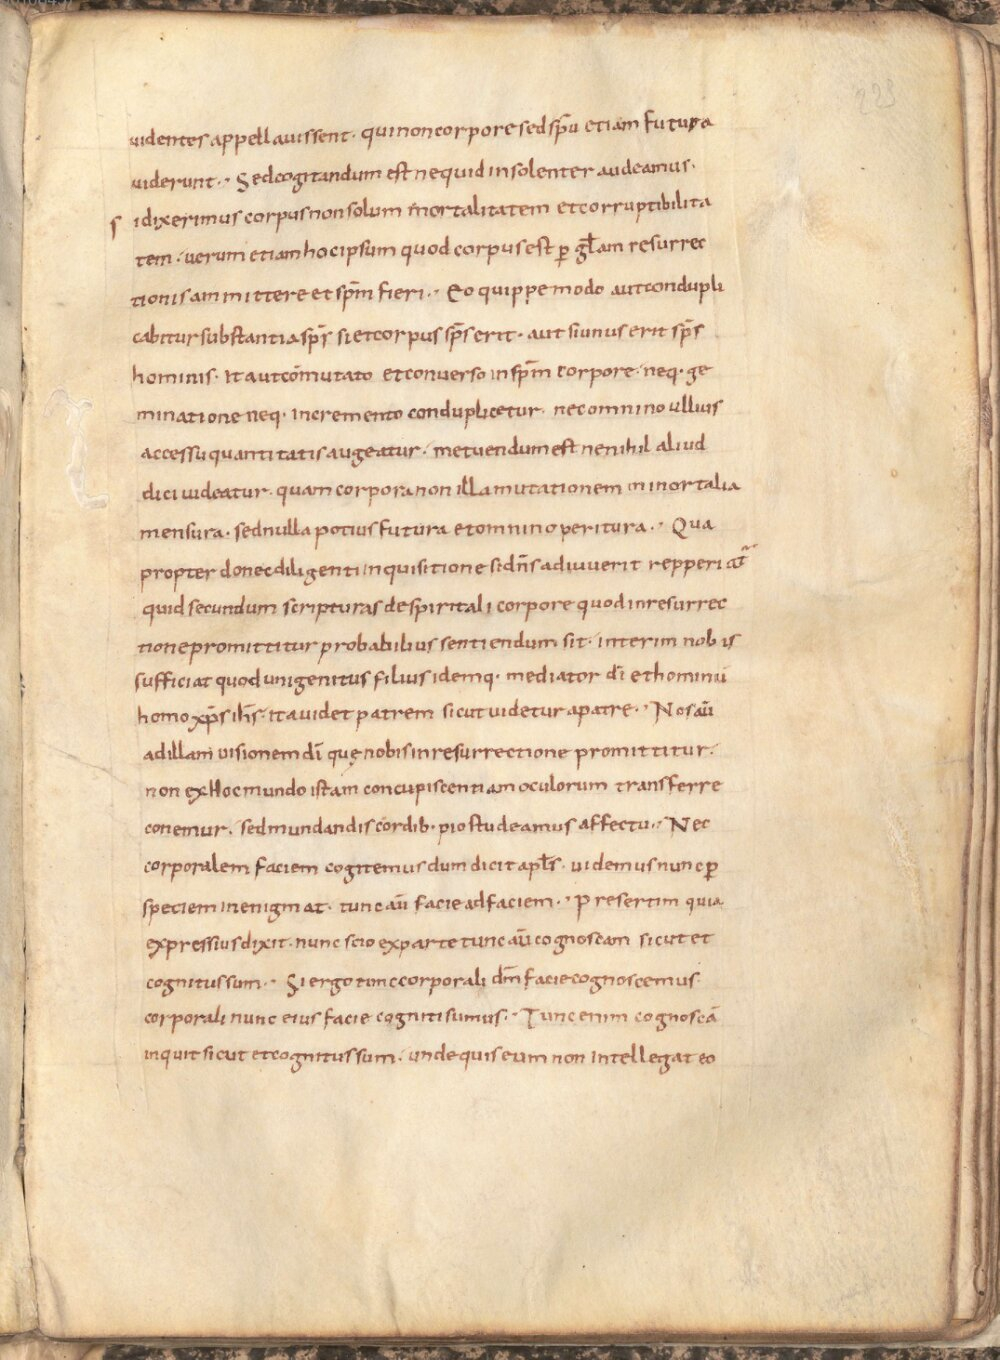 223
uidentes appellauissent · qui non corpore sed spū etiam futura
uiderunt ·· Sed cogitandum est ne quid insolenter audeamus ·
s idixerimus corpus non solum mortalitatem et corruptibilita
tem · uerum etiam hoc ipsum quod corpus est ꝑ gl̄am resurrec
tionis ammittere et spm̄ fieri ·· Eo quippe modo aut condupli
cabitur substantia sps̄ si et corpus sps̄ erit · aut si unus erit sps̄
hominis · ita ut cōmutato et conuerso in spm̄ corpore · neq· ge
minatione neq· incremento conduplicetur · nec omnino ullius
accessu quantitatis augeatur · metuendum est ne nihil aliud
dici uideatur · quam corpora non illa mutationem inmortalia
mensura · sed nulla potius futura et omnino peritura ·· Qua
propter donec diligenti inquisitione si dn̄s adiuuerit repperiat̄
quid secundum scripturas de spiritali corpore quod in resurrec
tione promittitur probabilius sentiendum sit · interim nobis
sufficiat quod unigenitus filius idemq· mediator dī et hominū
homo xp̄s ih̄s · ita uidet patrem sicut uidetur a patre ·· Nos aū
ad illam uisionem dī quę nobis in resurrectione promittitur ·
non ex Hoc mundo istam concupiscentiam oculorum transferre
conemur · sed mundandis cordib· pio studeamus affectu ·· Nec
corporalem faciem cogitemus dum dicit apls̄ · uidemus nunc ꝑ
speciem in enigmat · tunc aū facie ad faciem ·· Presertim quia
expressius dixit · nunc scio ex parte tunc aū cognoscam sicut et
cognitus sum ·· Si ergo tunc corporali dm̄ facie cognoscemus ·
corporali nunc eius facie cogniti sumus ·· Tunc enim cognoscā
inquit sicut et cognitus sum · unde quis eum non intellegat eo